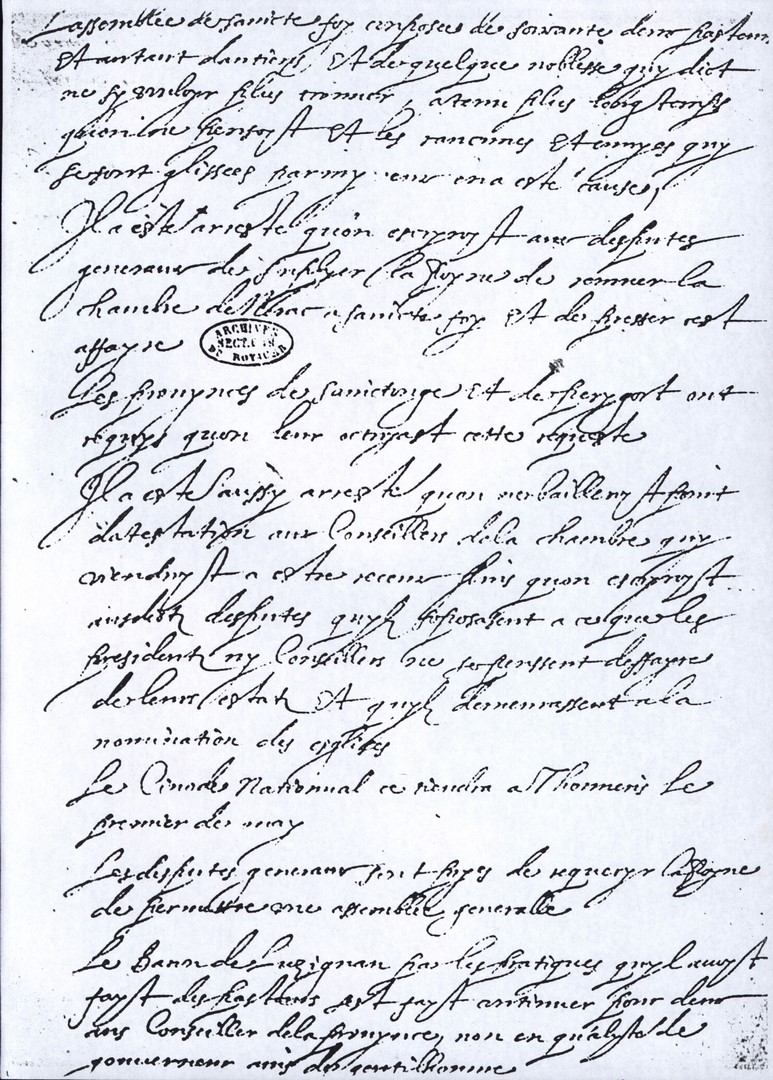 Lassemblée de saincte foy composée de soixante deux pasteurs
Et autant dantiens Et de quelque noblesse quy dict
ne sy vouloyr plus trouver, a tenu plus longtemps
quon ne pensoyt Et les rancunes Et envyes quy
se sont glissees parmy eux en a esté cause,
Il a esté arresté quon escriroyt aux desputes
generaux de suplyer la Royne de remuer la
chambre de Nerac a saincte foy Et de presser cest
affayre
ARCHIVES
SECT.
DU ROYAUME
Les provynces de sainctonge Et de perygort ont
requys quon leur octroyast cette requeste
Il a esté aussy arresté quon ne bailleroyt point
datestation aux Conseillers de la chambre quy
viendroyt a estre receux sins quon escriroyt
ausdictz desputes quylz soposassent a ce que les
presidentz ny Conseillers ne se peussent deffayre
de leurs estatz Et quylz demeurassent a la
nomination des esglises
Le Cinode Nationnal ce tiendra a Thonneins le
premier de may
Les desputes generaux sont pryes de requeryr la Royne
de permettre une assemblée generalle
Le Baron de Luzignan par les pratiques quyl avoyt
fayt des pasteurs est fayt continuer pour deux
ans Conseiller de la provynce, non en qualyté de
gouverneur ains de gentilhomme